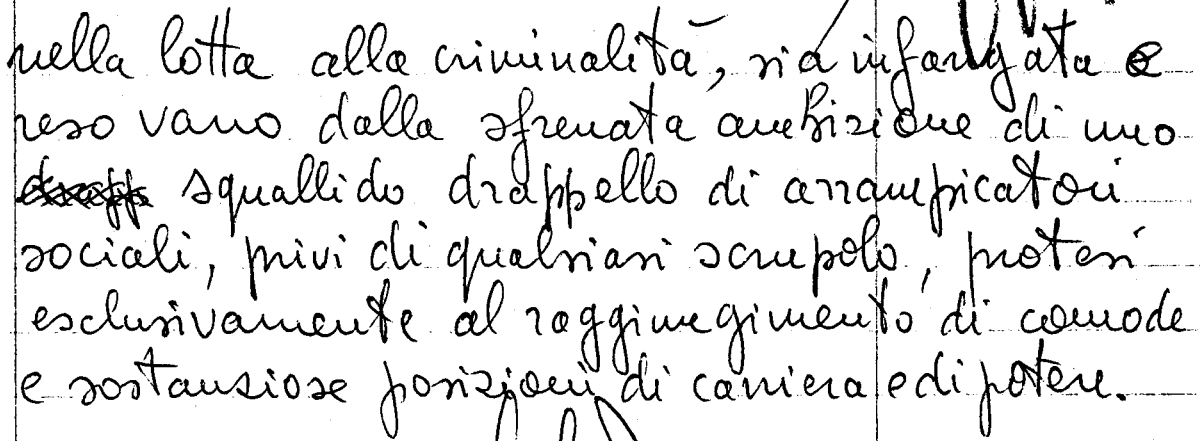 nella lotta alla criminalità, sia infangata e
reso vano dalla sfrenata ambizione di uno
squallido drappello di arrampicatori
sociali, privi di qualsiasi scrupolo, protesi
esclusivamente al raggiungimento di comode
e sostanziose posizioni di carriera e di potere.